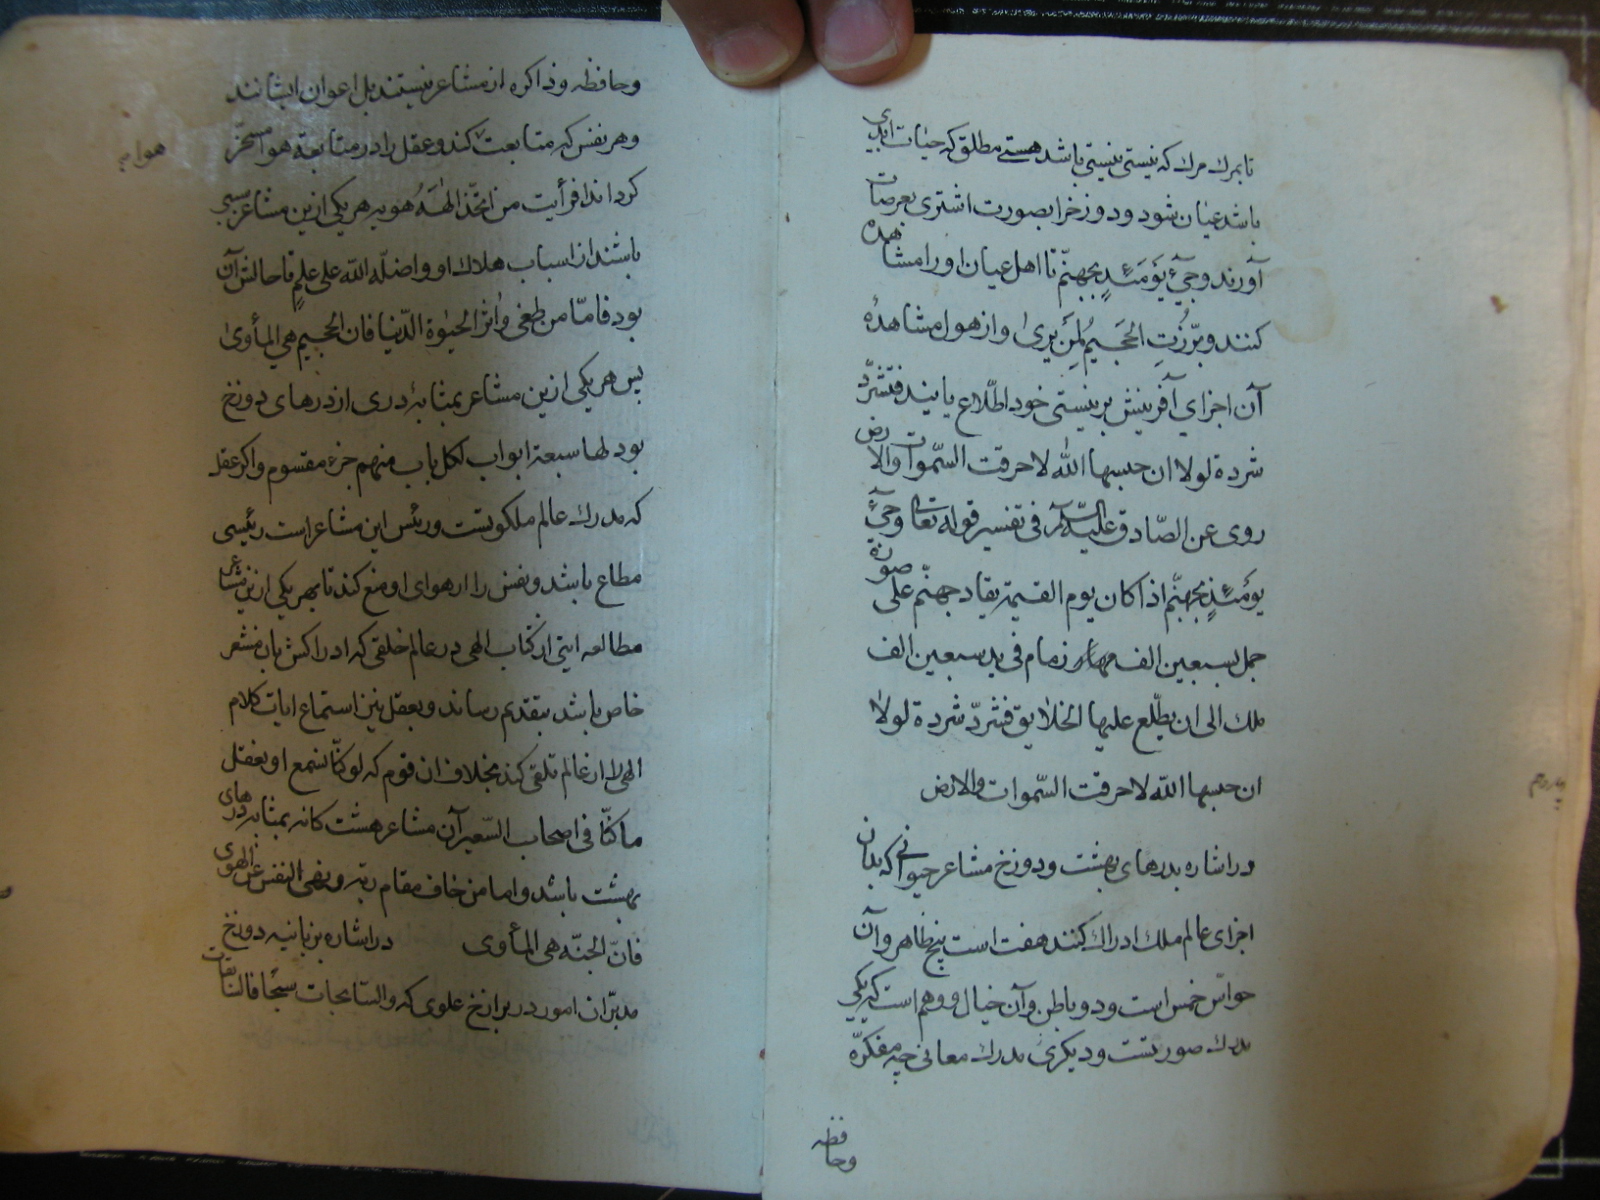 تا بمرك مرك كه نيستى نيستى باشد هستى مطلق كه حيات ابدى
باشد عيان شود و دوزخ را بصورت اشترى بعرصات
آورند وجىء يومئذ بجهنّم تا اهل عيان او را مشاهده
كنند وبرّزت الجحيم لمن يرى و از هول مشاهده
آن اجزاى آفرينش بر نيستى خود اطّلاع يابند فتشرّد
شردة لولا ان حبسها الله لاحرقت السّموات والارض
روى عن الصّادق عليه السّلام فى تفسير قوله تعالى وجىء
يومئذ بجهنّم اذا كان يوم القيمة يقاد جهنّم على صورة
جمل بسبعين الف زمام فى يد سبعين الف
ملك الى ان يطّلع عليها الخلايق فتشردّ شردة لولا
ان حبسها الله لاحرقت السّموات والارض
در اشاره بدرهاى بهشت و دوزخ مشاعر حيوانى كه بدان
اجزاى عالم ملك ادراك كنند هفت است پنج ظاهر و آن
حواسّ خمس است و دو باطن و آن خيال و وهم است كه يكى
مدرك صورتست و ديكرى مدرك معانى چه مفكرّه
وحافظه
وحافظه و ذاكره از مشاعر نيستند بل اعوان ايشانند
وهر نفس كه متابعت كند وعقل را در متابعة هوا مسخّر
هوا
كرداند افرأيت من اتّخذ الهه هويه هر يكى ازين مشاعر سببى
باشند از اسباب هلاك او واضلّه الله على علم تا حالش آن
بود فامّا من طغى واثر الحيوة الدّنيا فان الجحيم هى المأوى
پس هر يكى ازين مشاعر بمثابهٔ درى از درهاى دوزخ
بود لها سبعة ابواب لكل باب منهم جزء مقسوم واكر عقل
كه مدرك عالم ملكوتست ورئيس اين مشاعر است رئيسى
مطاع باشد ونفس را از هواى او منع كند تا بهر يكى ازين مشاعر
مطالعه ايتى از كتاب الهى در عالم خلقى كه ادراكش بان مشعر
خاص باشد بتقديم رساند وبعقل نيز استماع ايات كلام
الهى از عالم تلقى كند بخلاف ان قوم كه لو كنّا نسمع او نعقل
ما كنّا فى اصحاب السّعير آن مشاعر هشت كانه بمثابه درهاى
بهشت باشد واما من خاف مقام ربه ونهى النفس عن الهوى
فانّ الجنّه هى المأوى در اشاره بزبانيه دوزخ
مدبّران امور در برازخ علوى كه والسّابحات سبحًا فالسّابقات